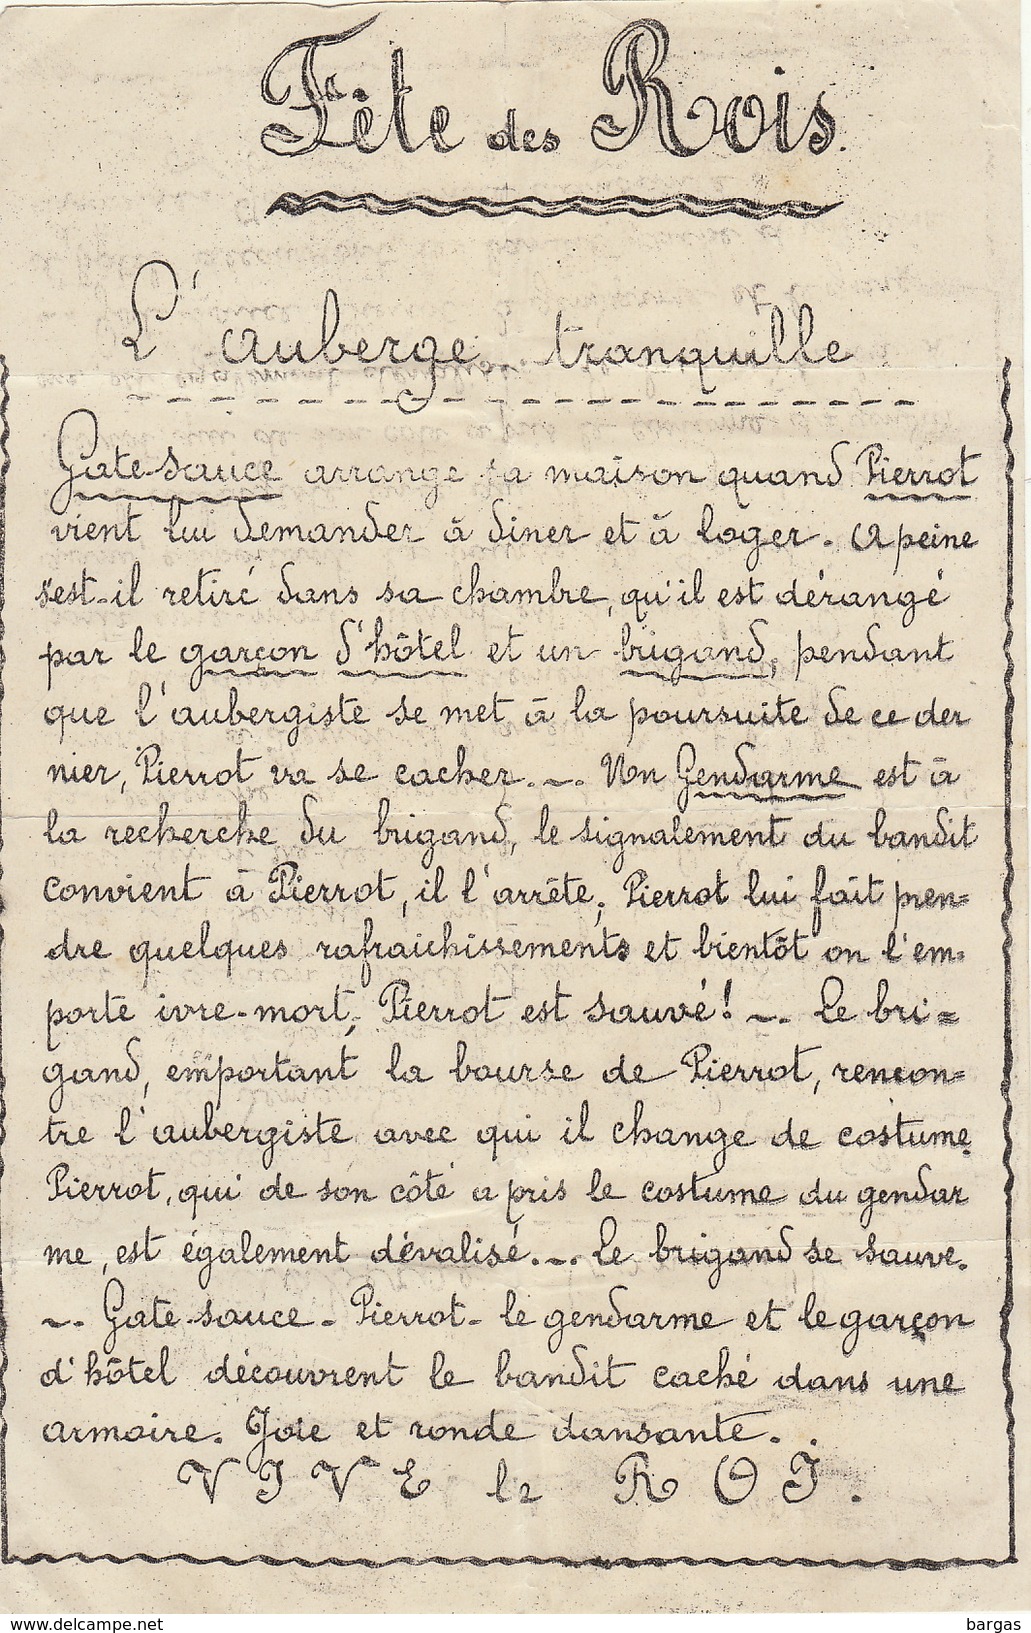 Fête des Rois.
L'auberge tranquille
Gate-sauce arrange sa maison quand Pierrot
vient lui demander à diner et à loger. A peine
s'est-il retiré dans sa chambre, qu'il est dérangé
par le garçon d'hôtel et un brigand, pendant
que l'aubergiste se met à la poursuite de ce der
nier, Pierrot va se cacher. ~. Un Gendarme est à
la recherche du brigand, le signalement du bandit
convient à Pierrot, il l'arrête; Pierrot lui fait pren=
dre quelques rafraichissements et bientôt on l'em-
porte ivre-mort; Pierrot est sauvé! ~. Le bri=
gand, emportant la bourse de Pierrot, rencon=
tre l'aubergiste avec qui il change de costume.
Pierrot, qui de son côté a pris le costume du gendar
me, est également dévalisé. ~. Le brigand se sauve.
~. Gate sauce - Pierrot - le gendarme et le garçon
d'hôtel découvrent le bandit caché dans une
armoire. Joie et ronde dansante. .
VIVE le ROI.
www.delcampe.net
bargas